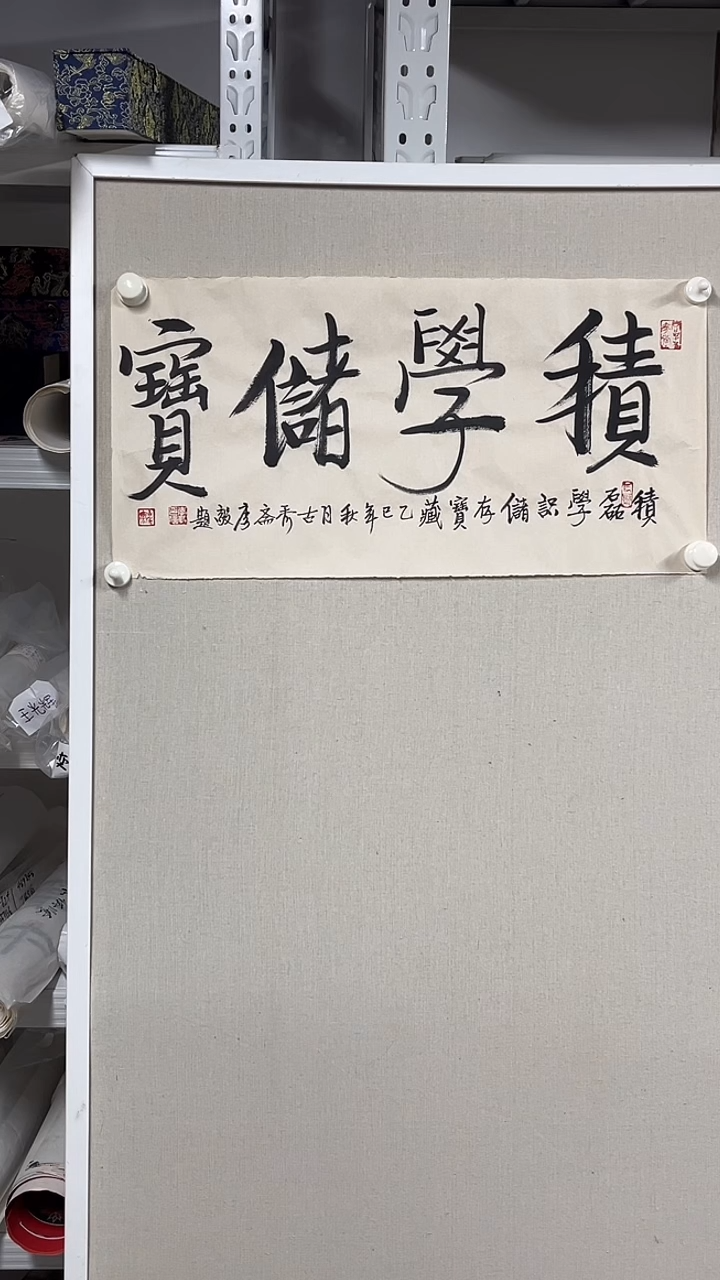 積學儲寶
積磊學識儲存寶藏乙巳年秋月古秀齋彦毅題